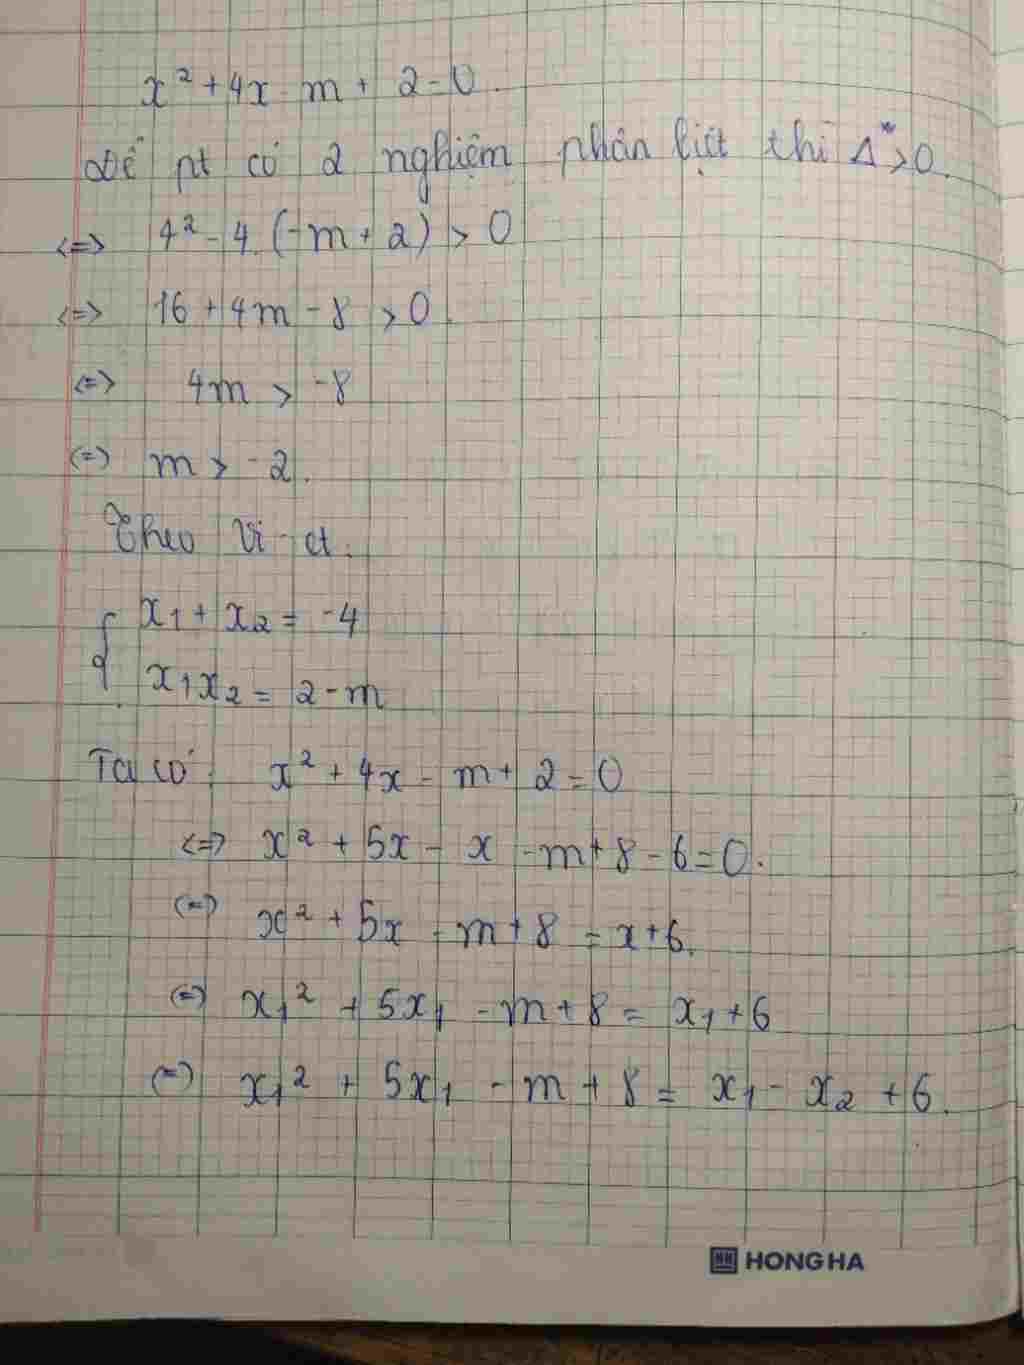 x² + 4x - m + 2 = 0.
Để pt có 2 nghiệm phân biệt thì Δ > 0.
<=> 4² - 4.(-m + 2) > 0
<=> 16 + 4m - 8 > 0.
<=> 4m > -8
<=> m > -2.
Theo Vi-et.
{ x₁ + x₂ = -4
x₁x₂ = 2 - m
Ta có: x² + 4x - m + 2 = 0
<=> x² + 5x - x - m + 8 - 6 = 0.
<=> x² + 5x - m + 8 = x + 6.
<=> x₁² + 5x₁ - m + 8 = x₁ + 6
<=> x₁² + 5x₁ - m + 8 = x₁ - x₂ + 6.
HH HONG HA